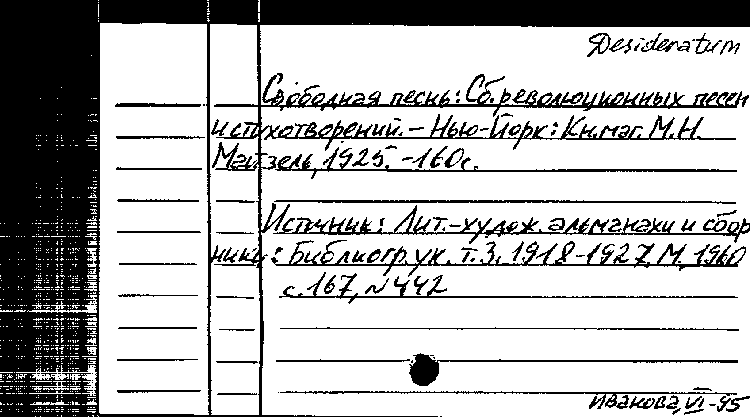 Desideratum
Свободная песнь: Сб. революционных песен
и стихотворений. - Нью-Йорк: Кн. маг. М.Н.
Майзель, 1925. - 160 с.
Источник: Лит.-худож. альманахи и сбор
ники: Библиогр. ук. т. 3. 1918-1927. М., 1960
с. 167, N 442
Иванова, VI-95